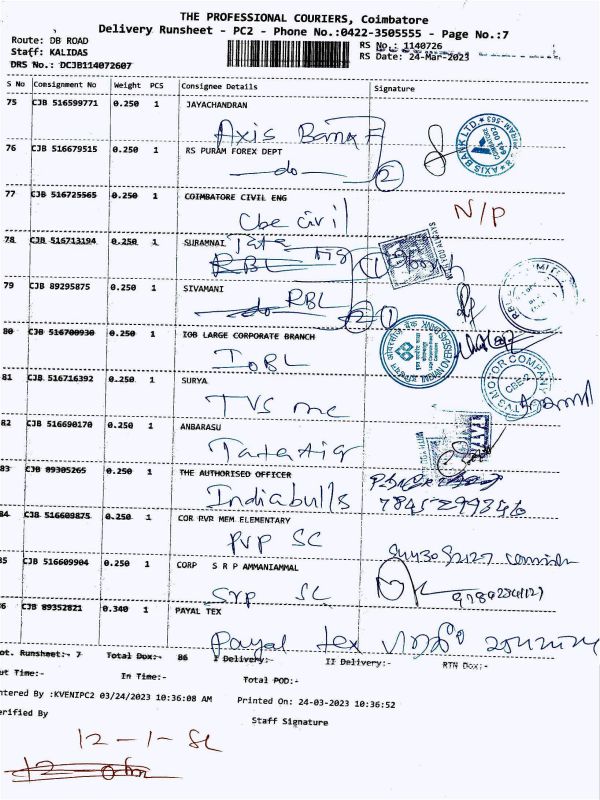 THE PROFESSIONAL COURIERS, Coimbatore
Delivery Runsheet - PC2 - Phone No.:0422-3505555 - Page No.:7
Route: DB ROAD
RS No.: 1140726
Staff: KALIDAS
RS Date: 24-Mar-2023
DRS No.: DCJB114072607
S No Consignment No Weight PCS Consignee Details Signature
75 CJB 516599771 0.250 1 JAYACHANDRAN
Axis Bank
76 CJB 516679515 0.250 1 RS PURAM FOREX DEPT
do 2
77 CJB 516725565 0.250 1 COIMBATORE CIVIL ENG
Cbe civil N/P
78 CJB 516713194 0.250 1 SURAMNAI
Tata
RBL
79 CJB 89295875 0.250 1 SIVAMANI
do RBL
80 CJB 516700930 0.250 1 IOB LARGE CORPORATE BRANCH
IOBL
81 CJB 516716392 0.250 1 SURYA
TVS mc
82 CJB 516690170 0.250 1 ANBARASU
Tata Aig
83 CJB 89305265 0.250 1 THE AUTHORISED OFFICER
Indiabulls
84 CJB 516609875 0.250 1 COR PVP MEM ELEMENTARY
PVP SC
85 CJB 516609904 0.250 1 CORP S R P AMMANIAMMAL
Srp SC
86 CJB 89352821 0.340 1 PAYAL TEX
Payal tex
Tot. Runsheet:- 7 Total Dox:- 86 I Delivery:- II Delivery:- RTN Dox:-
Out Time:- In Time:- Total POD:-
Entered By :KVENIPC2 03/24/2023 10:36:08 AM Printed On: 24-03-2023 10:36:52
Verified By Staff Signature
12-1-SC